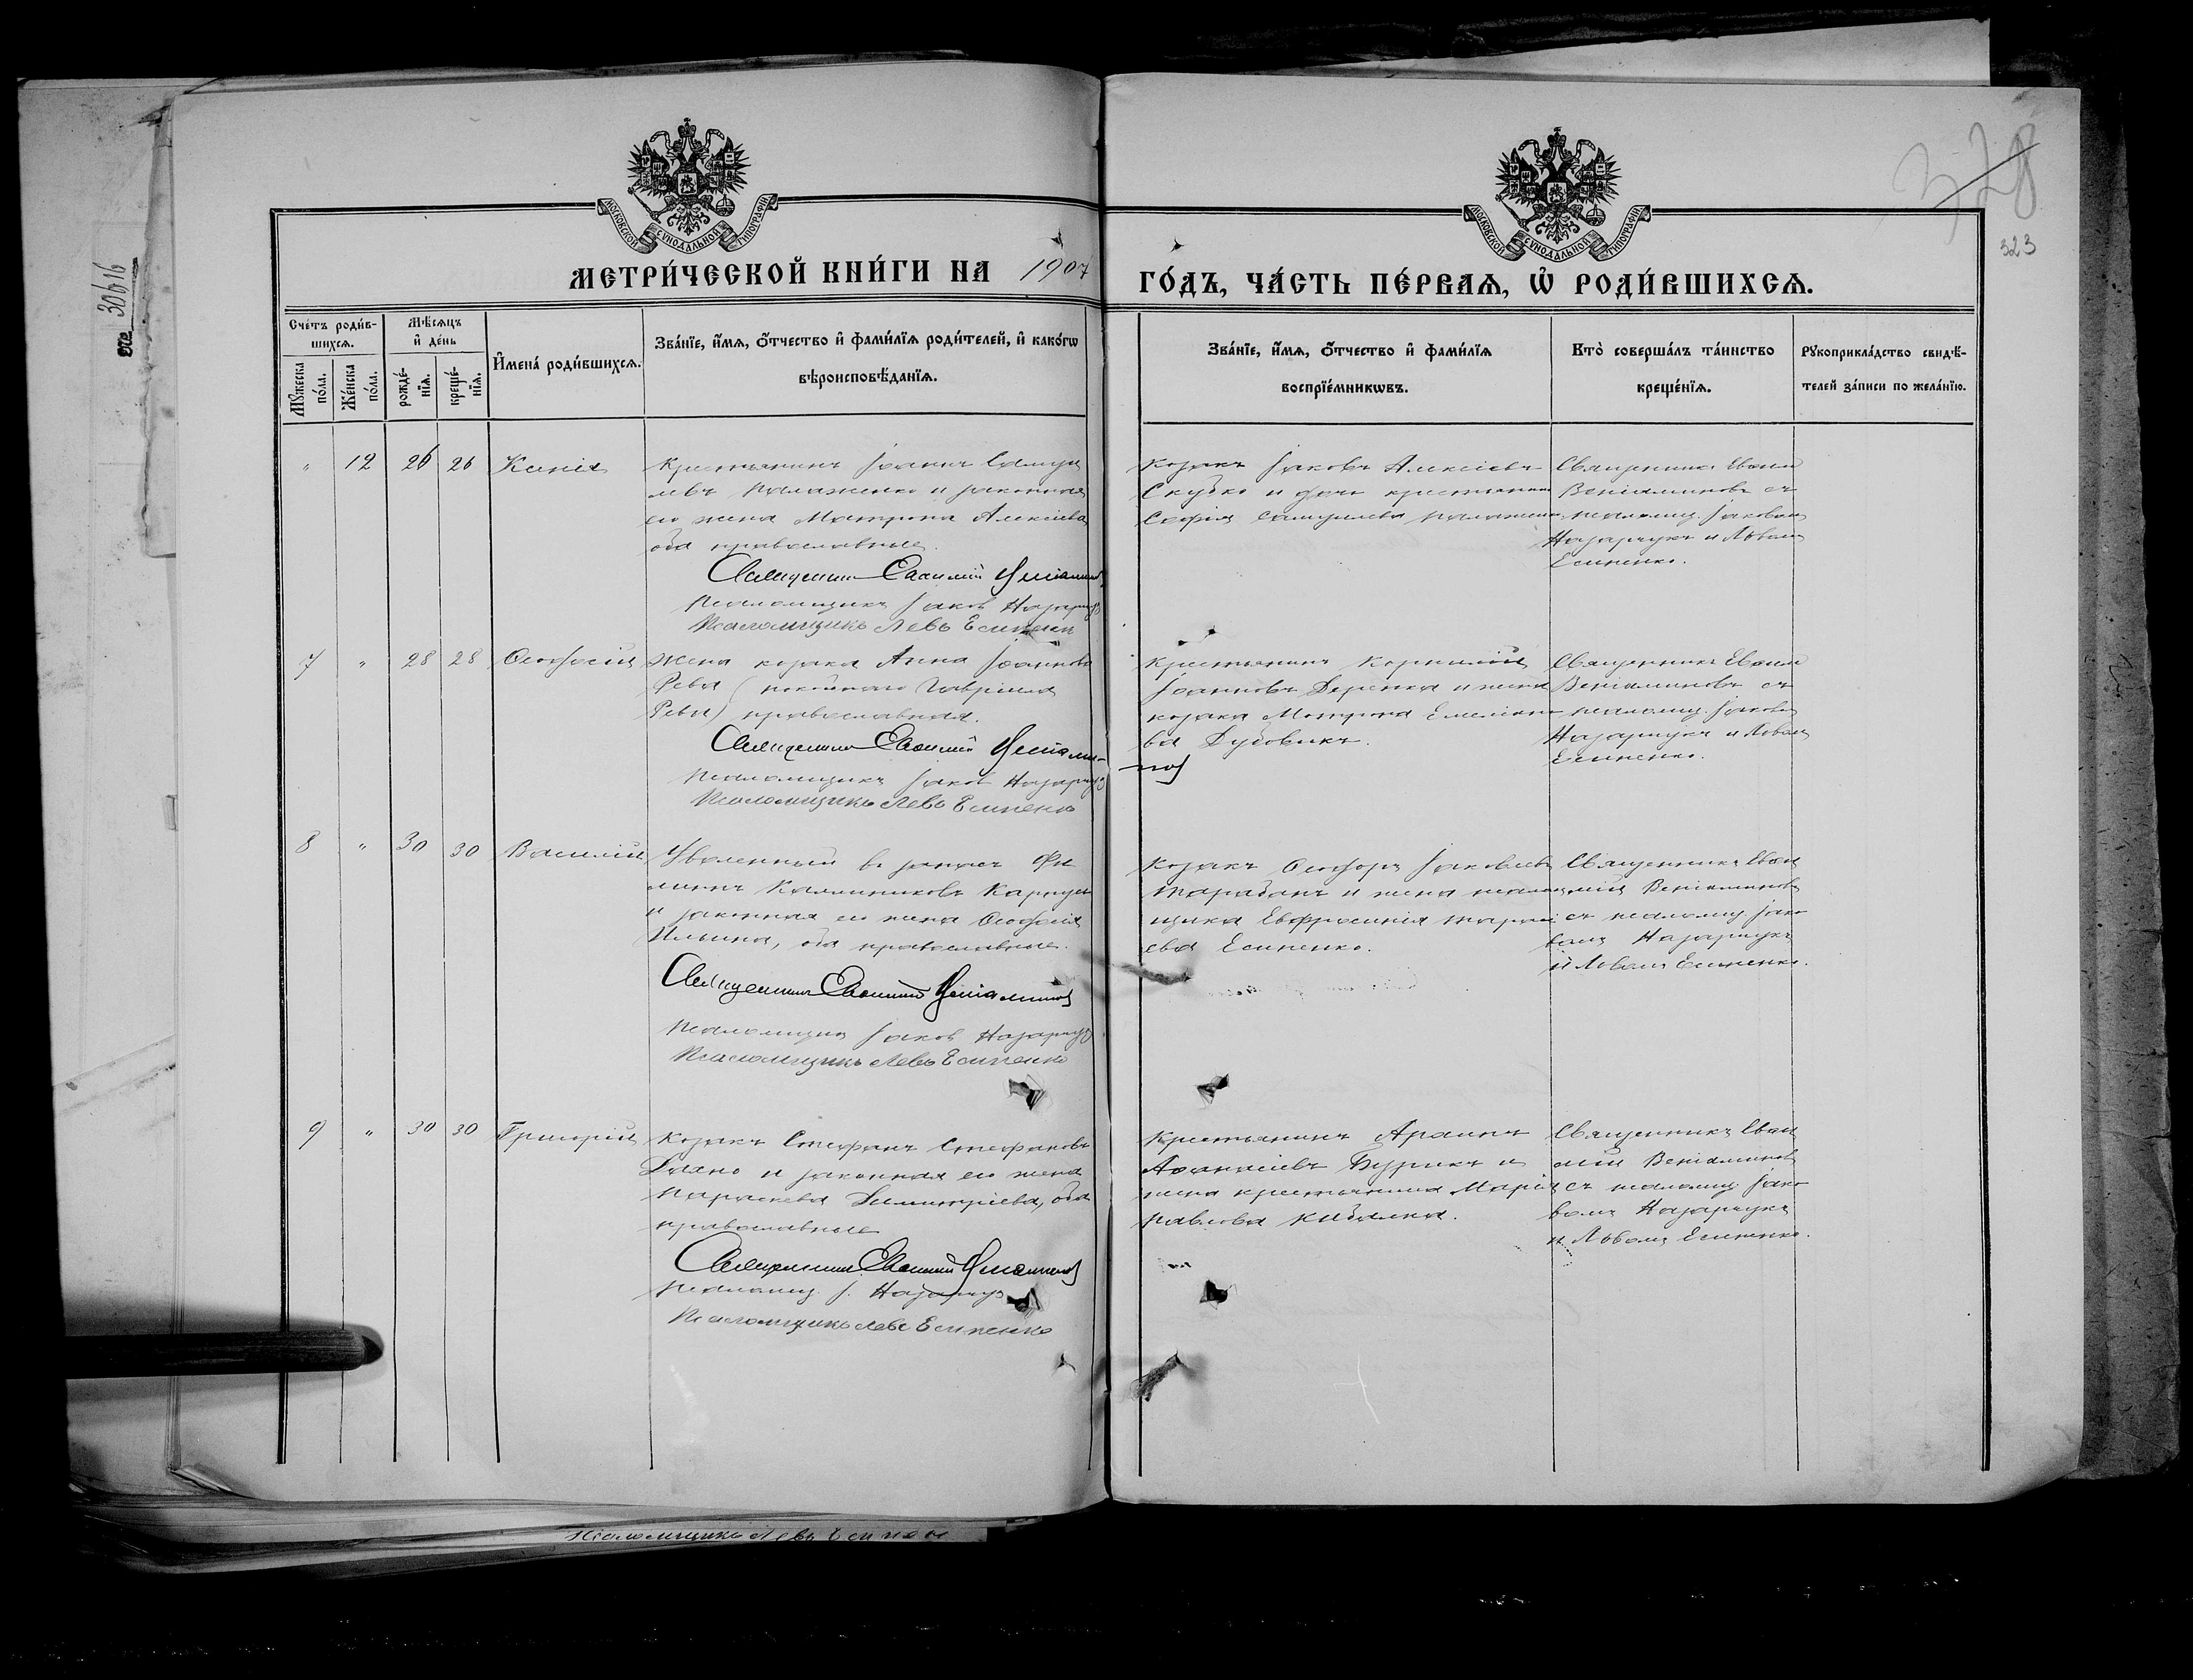 № 30616
328
323
МОСКОВСКОЙ СѴНОДАЛЬНОЙ ТИПОГРАФІИ
МОСКОВСКОЙ СѴНОДАЛЬНОЙ ТИПОГРАФІИ
МЕТРИ́ЧЕСКОЙ КНИ́ГИ НА 1907 ГО́ДЪ, ЧА́СТЬ ПЕ́РВАѦ, Ѡ҆ РОДИ́ВШИХСѦ.
Сче́тъ роди́в-
шихсѧ.
Мꙋ́жеска по́ла.
Же́нска по́ла.
Мѣ́сѧцъ и҆ де́нь
рожде́-
нїѧ.
креще́-
нїѧ.
И҆мена̀ роди́вшихсѧ.
Зва́нїе, и҆́мѧ, ѻ҆́тчество и҆ фами́лїѧ роди́телей, и҆ како́гѡ
вѣроисповѣ́данїѧ.
Зва́нїе, и҆́мѧ, ѻ҆́тчество и҆ фами́лїѧ
воспрїе́мникѡвъ.
Кто̀ соверша́лъ та́инство
креще́нїѧ.
Рꙋкоприкла́дство свидѣ́-
телей за́писи по жела́нїю.
" 12 26 26 Ксенія
Крестьянинъ Іоаннъ Самуи
ловъ Паламенко и законная
его жена Матрона Алексіева
оба православные.
Священникъ Евѳимій Веніаминовъ
Псаломщикъ Іаковъ Назарчукъ
Псаломщикъ Левъ Есипенко
Козакъ Іаковъ Алексіевъ
Скубко и дочь крестьянина
Софія Самуилова
Священникъ Евѳимій
Веніаминовъ съ
псаломщ. Іаковомъ
Назарчукъ и Львомъ
Есипенко.
7 " 28 28 Ѳеодосій
Жена козака Анна Іоаннова
Рева (покойнаго Гавріила
Ревы) православная.
Священникъ Евѳимій Веніами-
новъ
Псаломщикъ Іаковъ Назарчукъ
Псаломщикъ Левъ Есипенко
Крестьянинъ Корнилій
Іоанновъ Деренка и жена
козака Матрона Емеліано
ва Дубовикъ.
Священникъ Евѳимій
Веніаминовъ съ
псаломщ. Іаковомъ
Назарчукъ и Львомъ
Есипенко.
8 " 30 30 Василій
Уволенный въ запасъ Фи
липпъ Каллиниковъ
и законная его жена Ѳеодосія
Ильина, оба православные.
Священникъ Евѳимій Веніаминовъ
Псаломщикъ Іаковъ Назарчукъ
Псаломщикъ Левъ Есипенко
Козакъ Ѳеодоръ Іаковлевъ
Тарабанъ и жена псалом
щика Евфросинія Тарасі
ева Есипенко.
Священникъ Евѳи
мій Веніаминовъ
съ псаломщ. Іако
вомъ Назарчукъ
и Львомъ Есипенко.
9 " 30 30 Григорій
Козакъ Стефанъ Стефановъ
и законная его жена
Параскева Димитріева, оба
православные
Священникъ Евѳимій Веніаминовъ
Псаломщ. І. Назарчукъ
Псаломщикъ Левъ Есипенко
Крестьянинъ
Аѳанасіевъ Бурикъ и
жена крестьянина Марія
Павлова Кибалка.
Священникъ Евѳи
мій Веніаминовъ
съ псаломщ. Іако
вомъ Назарчукъ
и Львомъ Есипенко.
Псаломщикъ Левъ Есипен